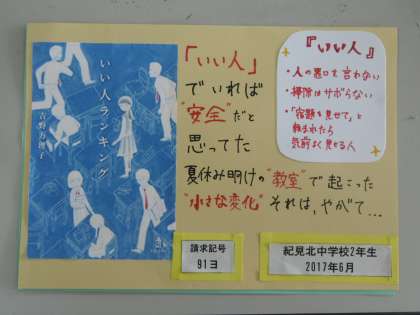 いい人ランキング
吉野万理子
「いい人」
でいれば
"安全"だと
思ってた
夏休み明けの"教室"で起こった
"小さな変化"それは、やがて…
『いい人』
・人の悪口を言わない
・掃除はサボらない
・「宿題を見せて」と
頼まれたら
気前よく見せる人
請求記号
91ヨ
紀見北中学校2年生
2017年6月